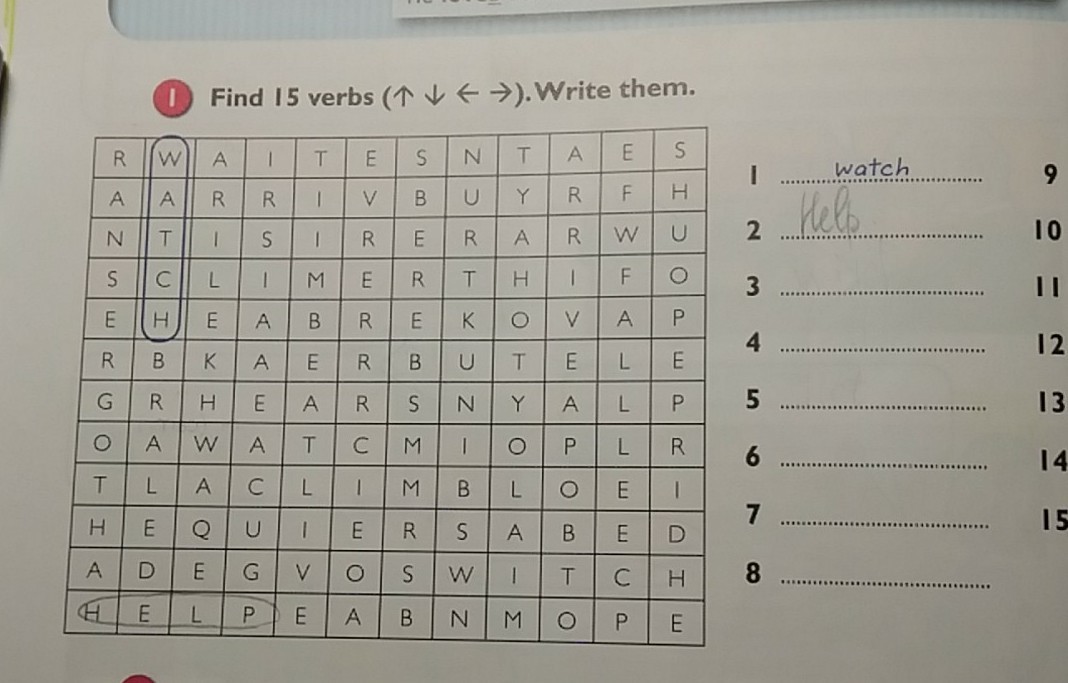 1 Find 15 verbs (↑ ↓ ← →). Write them.
R W A I T E S N T A E S
A A R R I V B U Y R F H
N T I S I R E R A R W U
S C L I M E R T H I F O
E H E A B R E K O V A P
R B K A E R B U T E L E
G R H E A R S N Y A L P
O A W A T C M I O P L R
T L A C L I M B L O E I
H E Q U I E R S A B E D
A D E G V O S W I T C H
H E L P E A B N M O P E
1 watch
2 Help
3
4
5
6
7
8
9
10
11
12
13
14
15